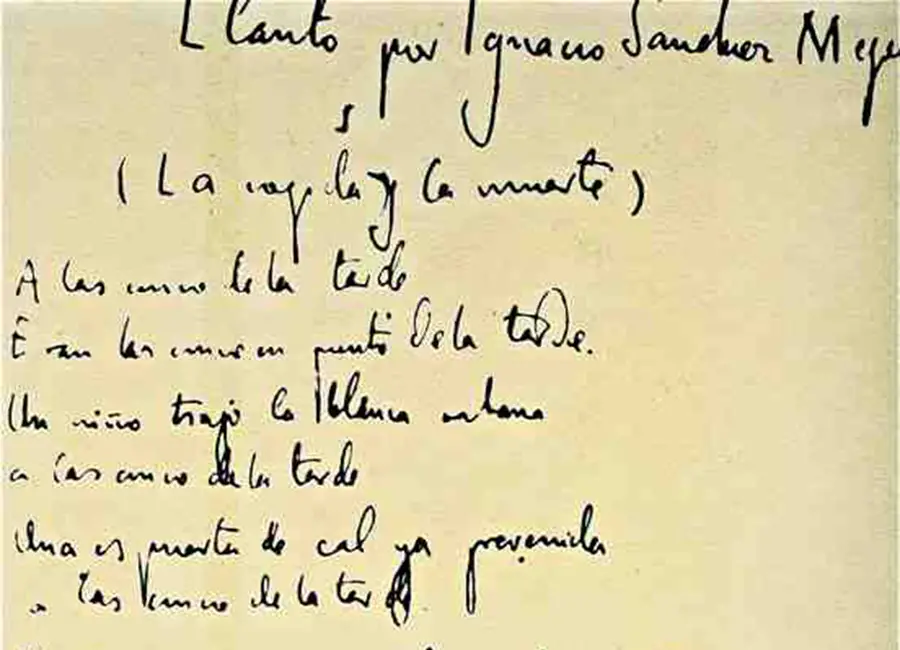 Llanto por Ignacio Sanchez Meji
(La cogida y la muerte)
A las cinco de la tarde
Eran las cinco en punto de la tarde.
Un niño trajo la blanca sabana
a las cinco de la tarde
Una espuerta de cal ya prevenida
a las cinco de la tarde